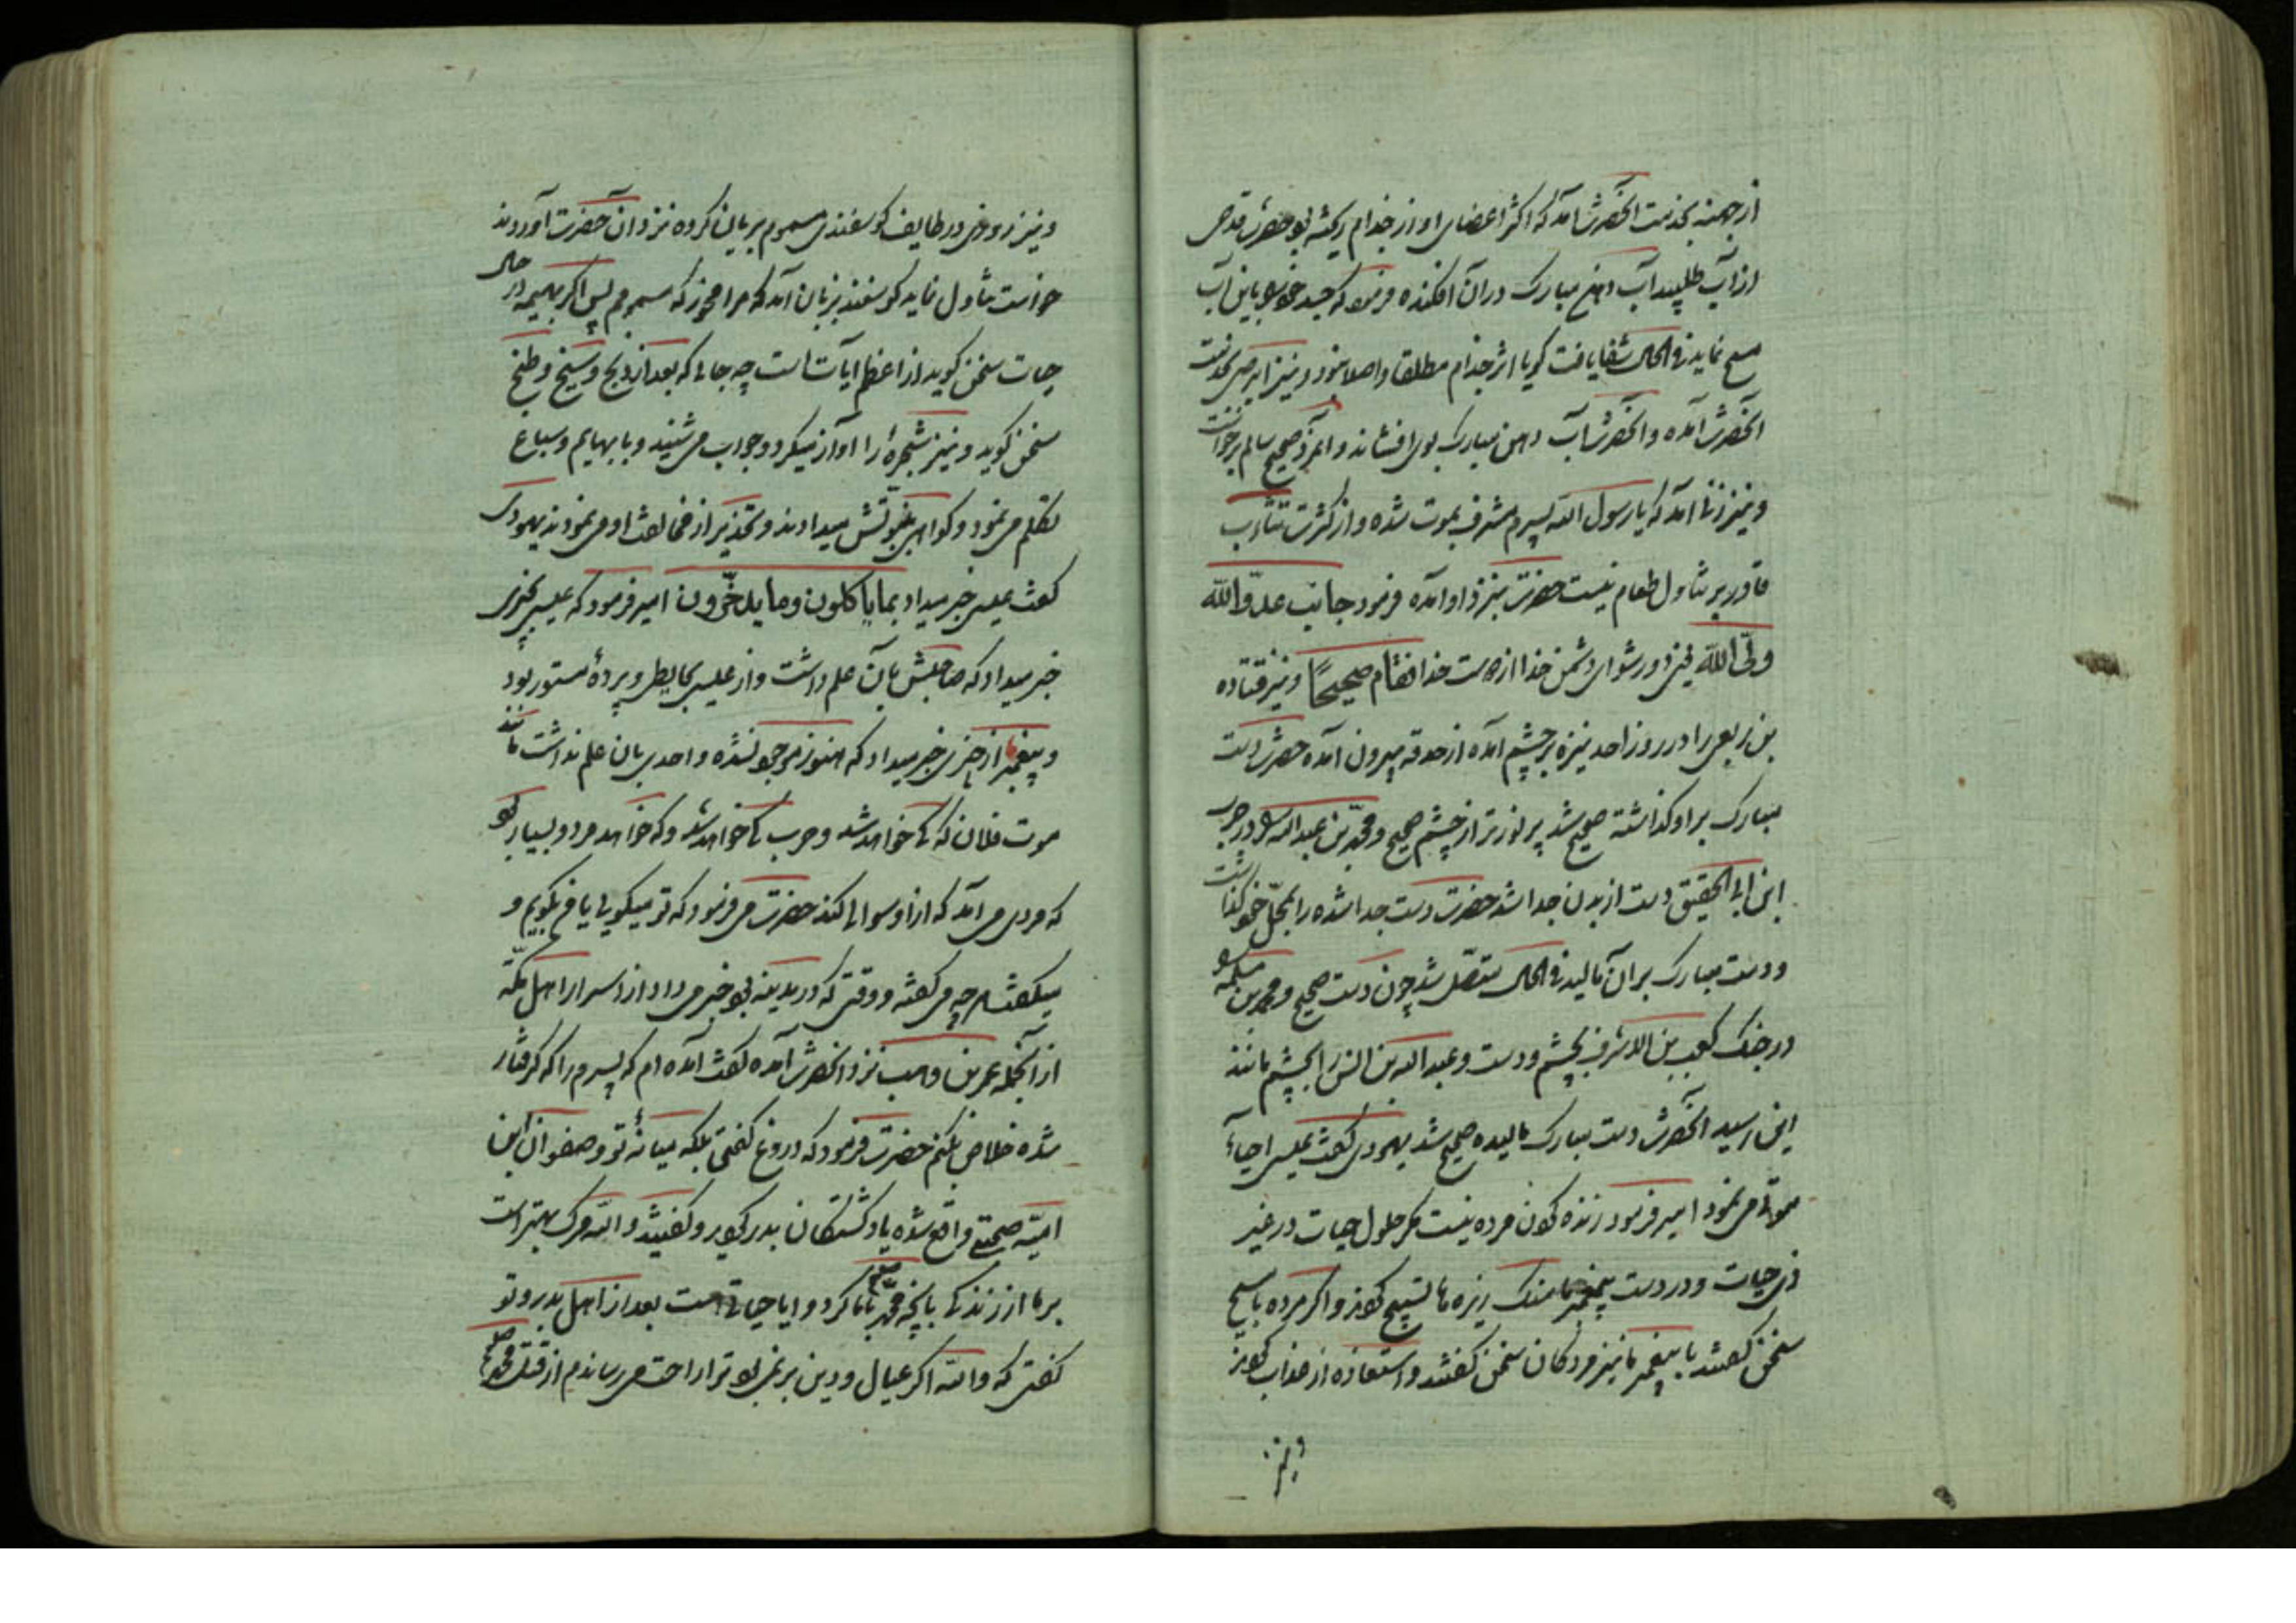 از جهینه بخدمت آنحضرت آمد که اکثر اعضای او از جذام ریخته بود حضرت قدحی
از آب طلبید آب دهن مبارک در آن افکنده فرمود که جسد خود باین آب
مسح نماید فی الحال شفا یافت گویا اثر جذام مطلقا و اصلا نبود و نیز ابرصی بخدمت
آنحضرت آمده و آنحضرت آب دهن مبارک بوی افشاند و آنمرد صحیح سالم برخواست
و نیز زنی آمد که یا رسول الله پسرم مشرف بموت شده و از کثرت تثاوب
قادر بر تناول طعام نیست حضرت بنزد او آمده فرمود جانب عدو الله
ولی الله یعنی دور شو ای دشمن خدا از دوست خدا فقام صحیحا و نیز قتاده
بن ربعی را در روز احد نیزه بر چشم آمده از حدقه بیرون آمده حضرت دست
مبارک بر او گذاشته صحیح شد پر نورتر از چشم صحیح و محمد بن عبدالله را در حرب
ابن ابی الحقیق دست از بدن جدا شد حضرت دست جدا شده را بمحل خود گذاشت
و دست مبارک بر آن مالید فی الحال متصل شد چون دست صحیح و محمد بن مسلمه را
در جنگ کعب بن الاشرف بچشم و دست و عبدالله بن انیس را بچشم مانند
این رسید آنحضرت دست مبارک مالیده صحیح شد یهودی گفت عیسی احیاء
موتی می نمود امیر فرمود زنده کردن مرده نیست مگر حلول حیات در غیر
ذی حیات و در دست پیغمبر ما سنگ ریزه ها تسبیح کردند و اگر مرده با مسیح
سخن گفتند با پیغمبر ما نیز مردگان سخن گفتند و استعاذه از عذاب کردند
و نیز
و نیز روزی در طایف گوسفندی مسموم بریان کرده نزد آن حضرت آوردند
خواست تناول نماید گوسفند بزبان آمد که مرا مخور که مسمومم پس اگر بهیمه در حال
حیات سخن گوید از اعظم ایات است چه جای که بعد از ذبح و سلخ و طبخ
سخن گوید و نیز شجره را آواز میکرد و جواب می شنید و با بهایم و سباع
تکلم می نمود و گواهی بنبوتش میدادند و تحذیر از مخالفت او می نمودند یهودی
گفت عیسی خبر میداد بما یاکلون و ما یدخرون امیر فرمود که عیسی بچیزی
خبر میداد که صاحبش بآن علم داشت و از عیسی بحایطی و پرده مستور بود
و پیغمبر ما از چیزی خبر میداد که هنوز موجود نشده و احدی بان علم نداشت مانند
موت فلان که کی خواهد شد و حرب کی خواهد شد و که خواهد مرد و بسیار بود
که مردی می آمد که از او سوالی کند حضرت می فرمود که تو میگویی یا من بگویم و
میگفت هر چه می گفته و وقتی که در مدینه بود خبر می داد از اسرار اهل مکه
از آنجمله عمر بن وهب نزد آنحضرت آمده گفت آمده ام که پسرم را که گرفتار
شده خلاص بکنم حضرت فرمود که دروغ گفتی بلکه میانه تو و صفوان ابن
امیه صحبتی واقع شده یاد کشتگان بدر کردید و گفتید والله مرگ بهتر است
بر ما از زندگی بآنچه محمد صلعم با ما کرد و ایا حیاتی هست بعد از اهل بدر و تو
گفتی که والله اگر عیال و دین بر من نبود ترا راحت می رساندم از قتل محمد صلعم